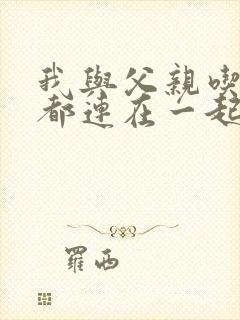 我與父親喫
都連在一起
羅西